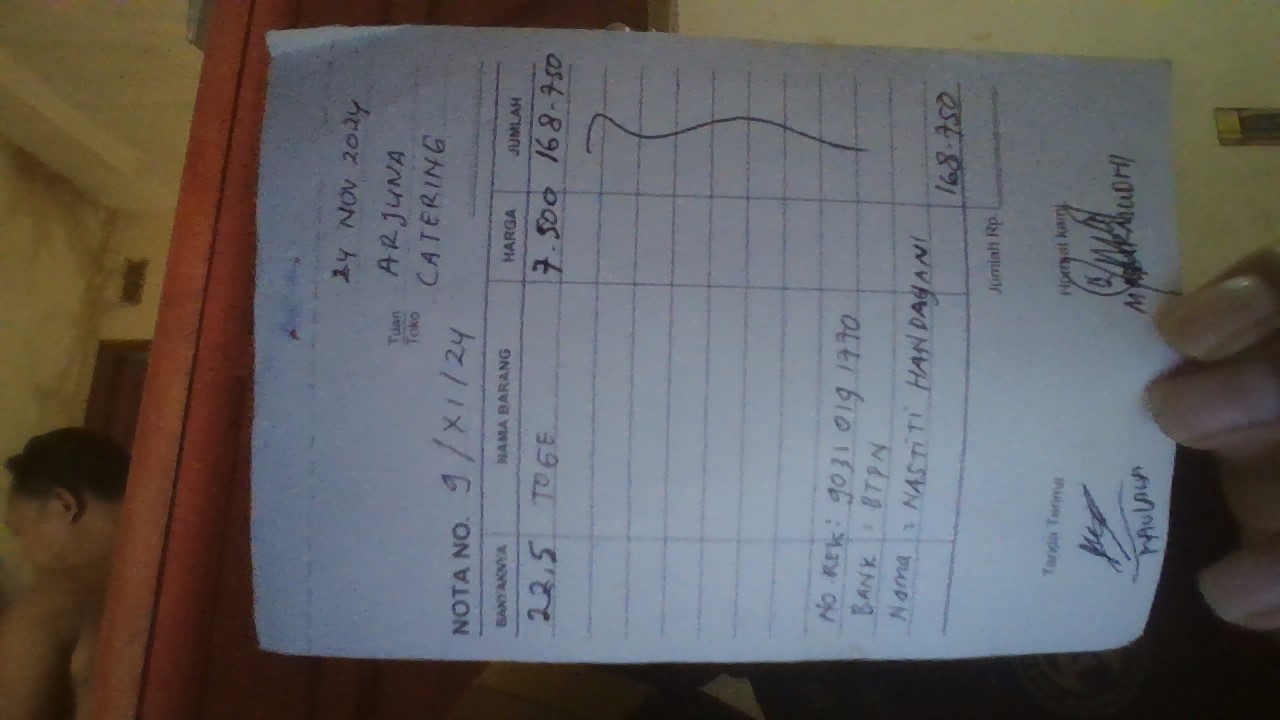 24 NOV 2024
Tuan
Toko
ARJUNA
CATERING
NOTA NO. 9/XI/24
BANYAKNYA NAMA BARANG HARGA JUMLAH
22,5 TOGE 7.500 168.750
NO REK: 9031 019 1770
BANK : BTPN
Nama : NASTITI HANDAYANI
168.750
Jumlah Rp.
Tanda Terima Hormat Kami
MAULANA